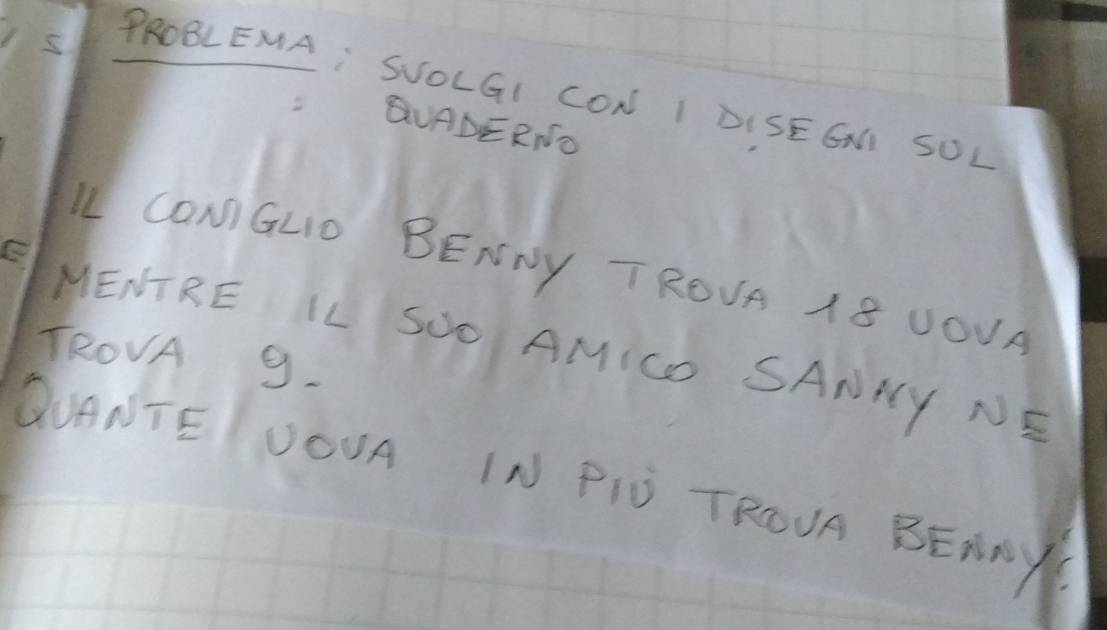 PROBLEMA: SVOLGI CON I DISEGNI SUL
QUADERNO
IL CONIGLIO BENNY TROVA 18 UOVA
MENTRE IL SUO AMICO SANNY NE
TROVA 9.
QUANTE UOVA IN PIÙ TROVA BENNY?